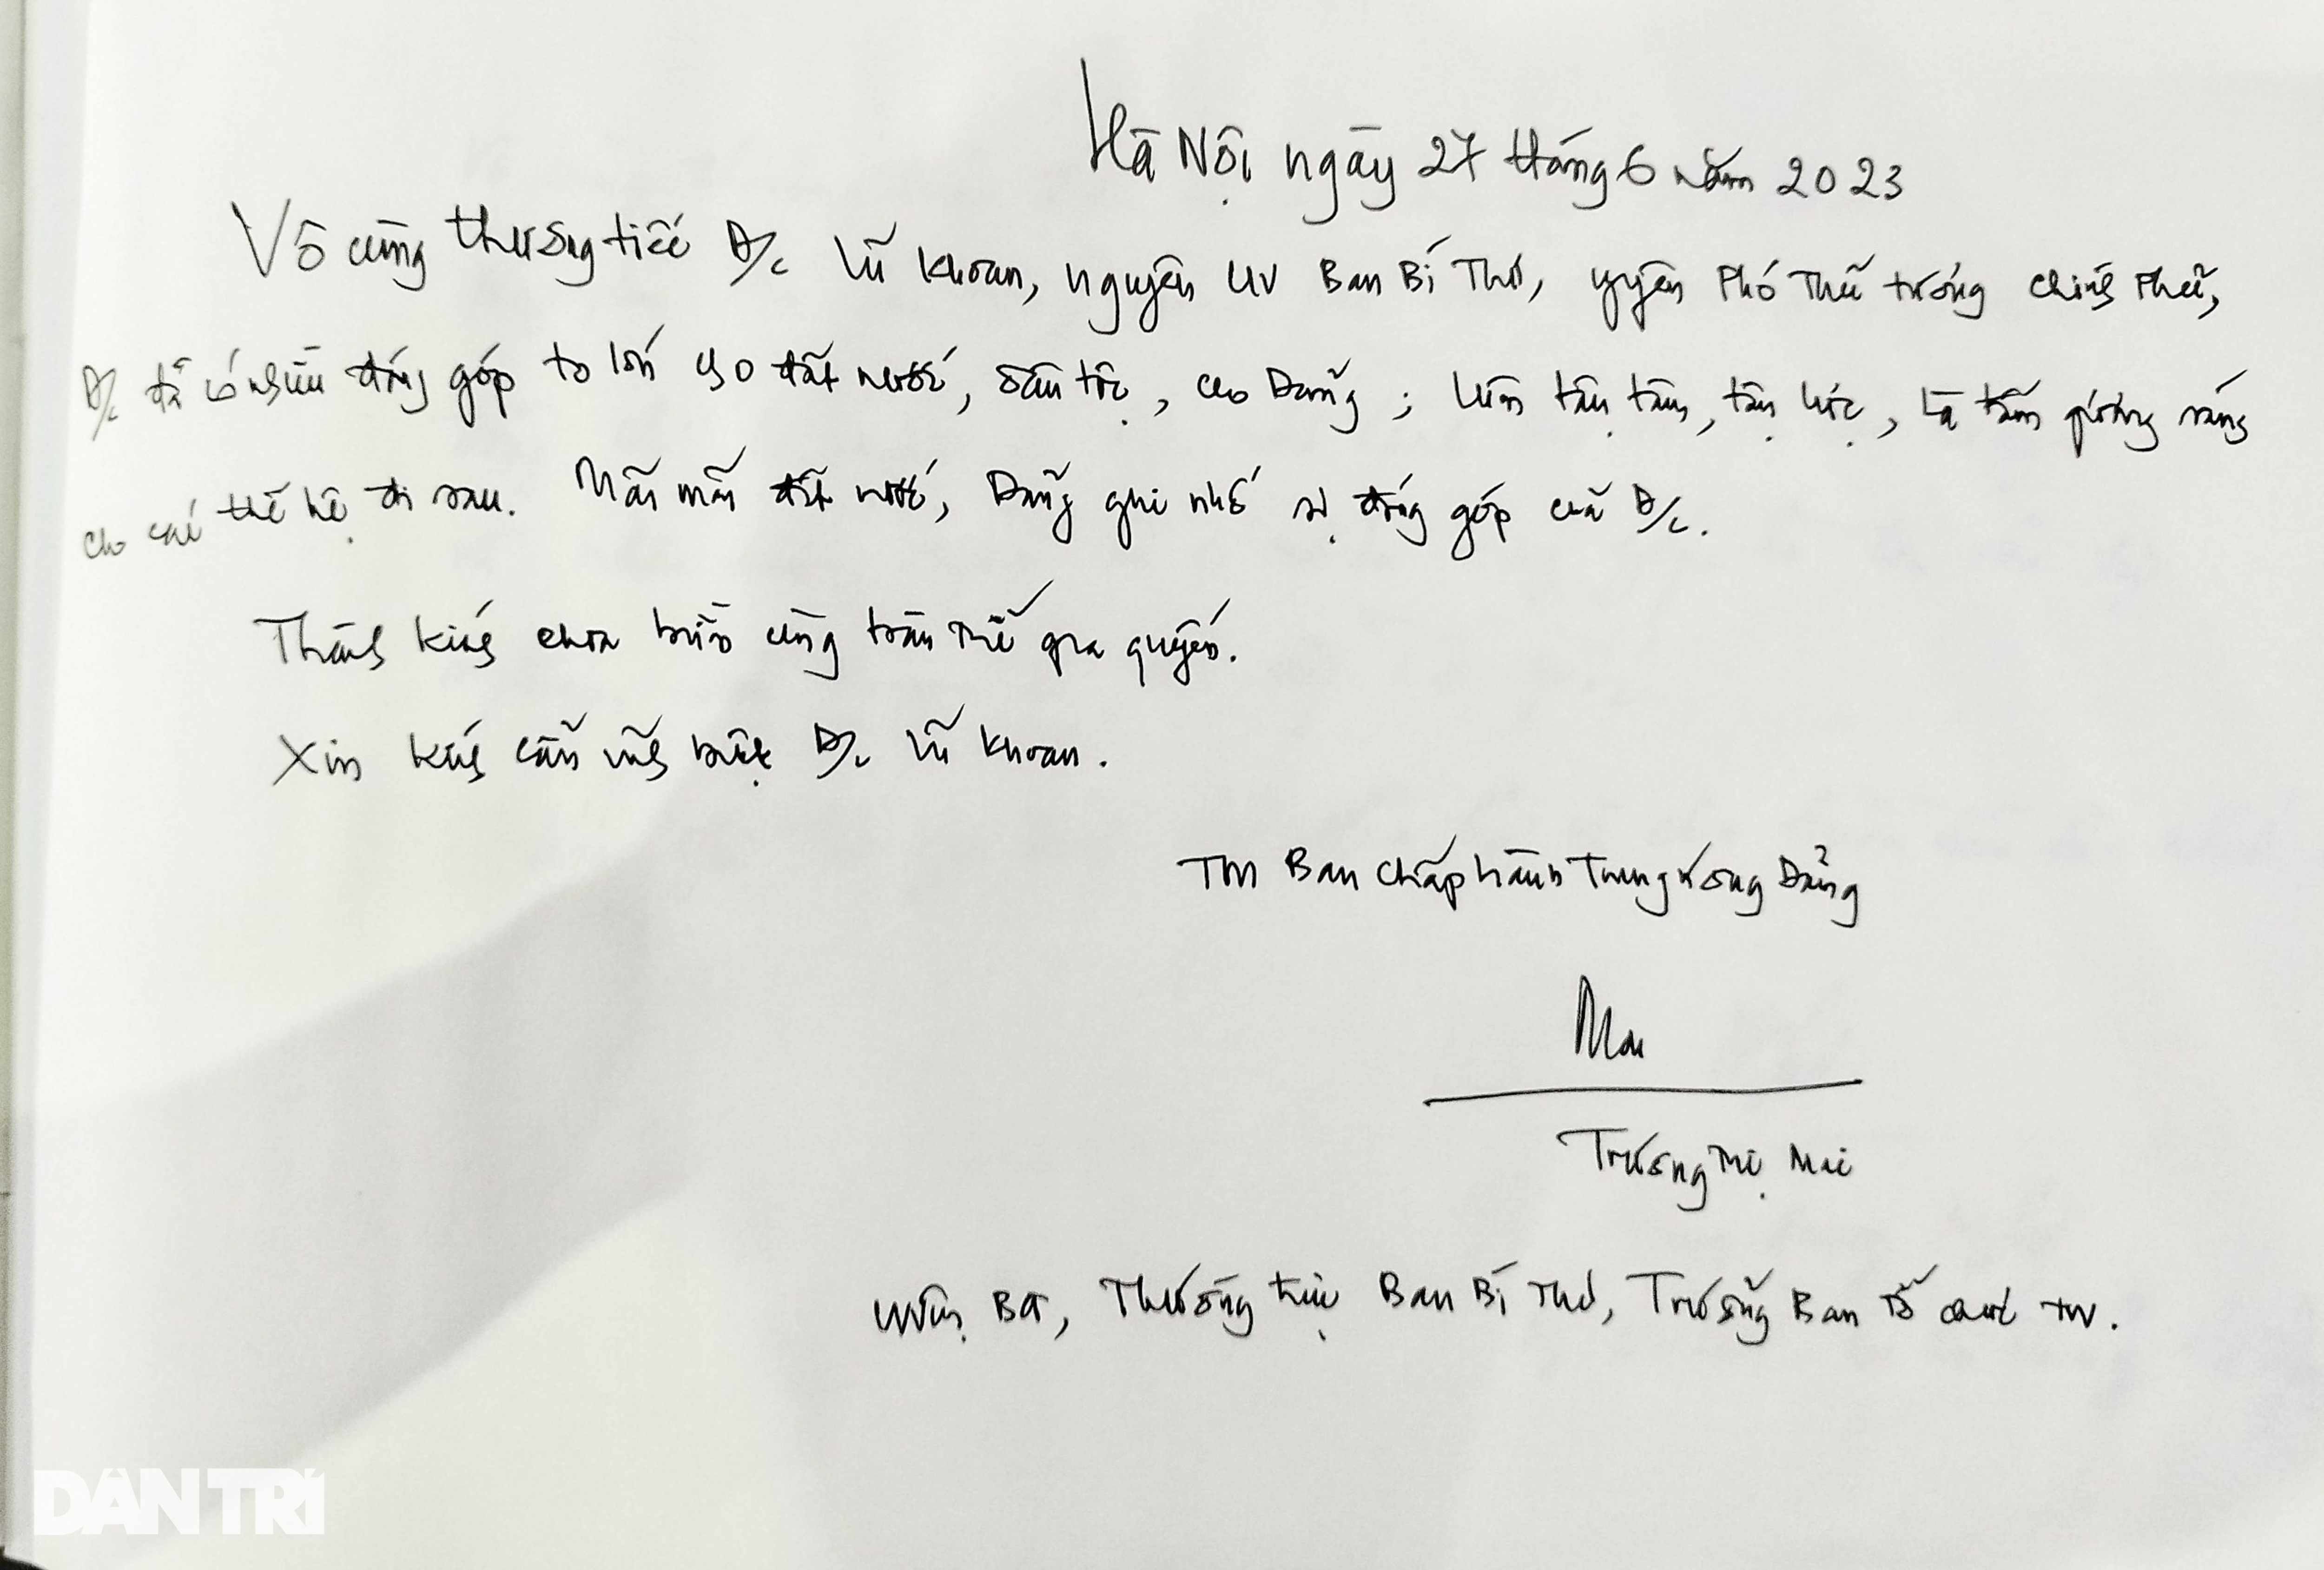 Hà Nội ngày 27 tháng 6 năm 2023
Vô cùng thương tiếc Đ/c Vũ Khoan, nguyên UV Ban Bí Thư, nguyên Phó Thủ tướng Chính Phủ,
Đ/c đã có nhiều đóng góp to lớn cho đất nước, dân tộc, cho Đảng; luôn tận tâm, tận lực, là tấm gương sáng
cho các thế hệ đi sau. Mãi mãi đất nước, Đảng ghi nhớ sự đóng góp của Đ/c.
Thành kính chia buồn cùng toàn thể gia quyến.
Xin kính cẩn vĩnh biệt Đ/c Vũ Khoan.
TM Ban Chấp hành Trung ương Đảng
Mai
Trương Thị Mai
UVBCT, Thường trực Ban Bí Thư, Trưởng Ban Tổ chức TW.
DÂN TRÍ